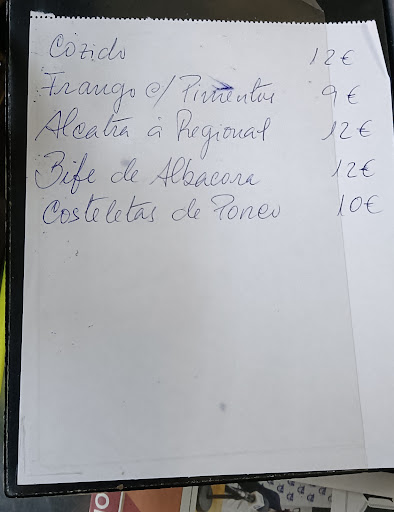 Cozido 12€
Frango c/ Pimentos 9€
Alcatra à Regional 12€
Bife de Albacora 12€
Costeletas de Porco 10€